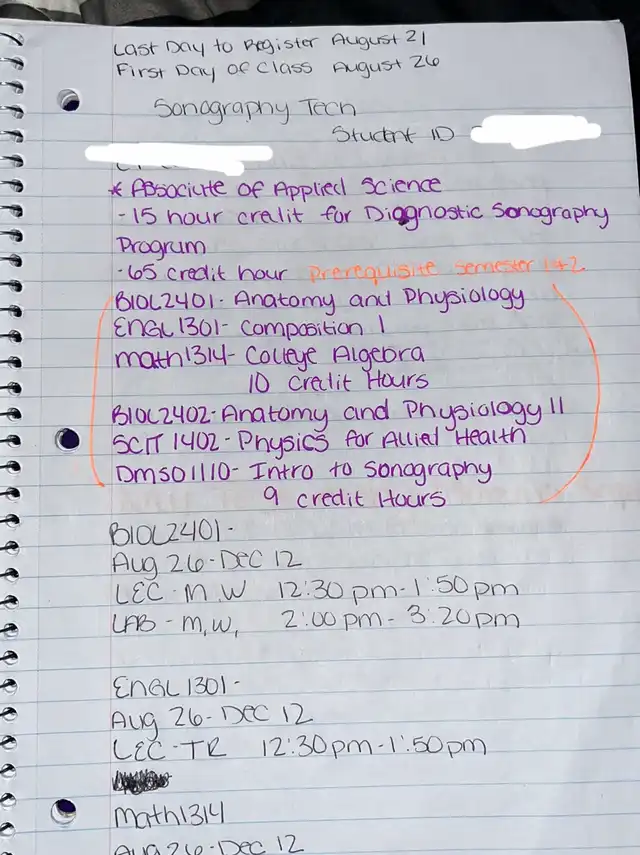 Last Day to Register August 21
First Day of Class August 26
Sonography Tech
Student ID
* Associate of Applied Science
-15 hour credit for Diagnostic Sonography
Program
-65 credit hour Prerequisite semester 1+2
BIOL2401- Anatomy and Physiology
ENGL1301- Composition 1
math1314- College Algebra
10 Credit Hours
BIOL2402-Anatomy and Physiology II
SCIT 1402-Physics for Allied Health
DMSO1110- Intro to Sonography
9 credit Hours
BIOL2401-
Aug 26-Dec 12
LEC-M,W 12:30 pm-1:50pm
LAB-M,W, 2:00pm-3:20pm
ENGL1301-
Aug 26-Dec 12
LEC-TR 12:30pm-1:50pm
Math1314
Aug 26-Dec 12